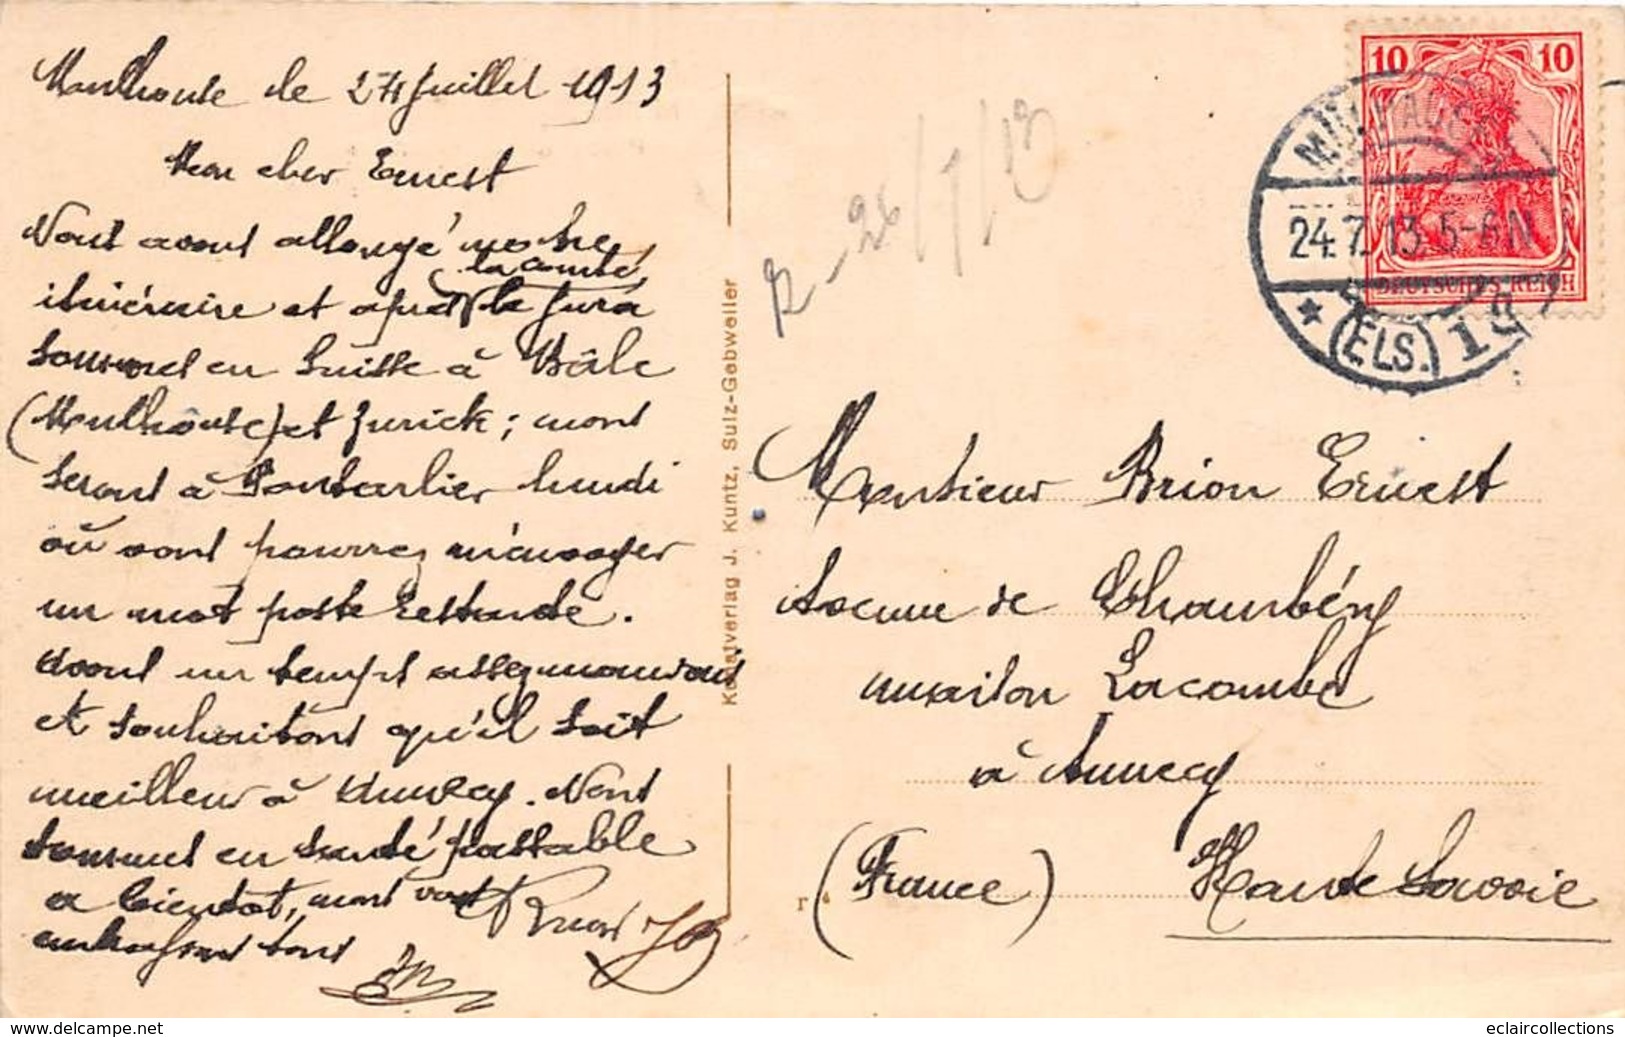 Mulhouse le 24 juillet 1913
Mon cher Ernest
Nous avons allongé notre
la comté,
itinéraire et après le Jura
sommes en Suisse à Bâle
(Mulhouse) et Zurick; nous
serons à Pontarlier lundi
où vous pourrez m'envoyer
un mot poste restante.
Avons un temps assez mauvais
et souhaitons qu'il soit
meilleur à Annecy. Nous
sommes en santé passable
a bientot, nous vous
embrassons tous
Kunstverlag J. Kuntz, Sulz-Gebweiler
R - 26/7/13
10 10
DEUTSCHES REICH
MÜLHAUSEN
24.7.13.5-6N
* (ELS.) 1
Monsieur Brion Ernest
Avenue de Chambéry
maison Lacombe
à Annecy
(France) Haute Savoie
www.delcampe.net
eclaircollections